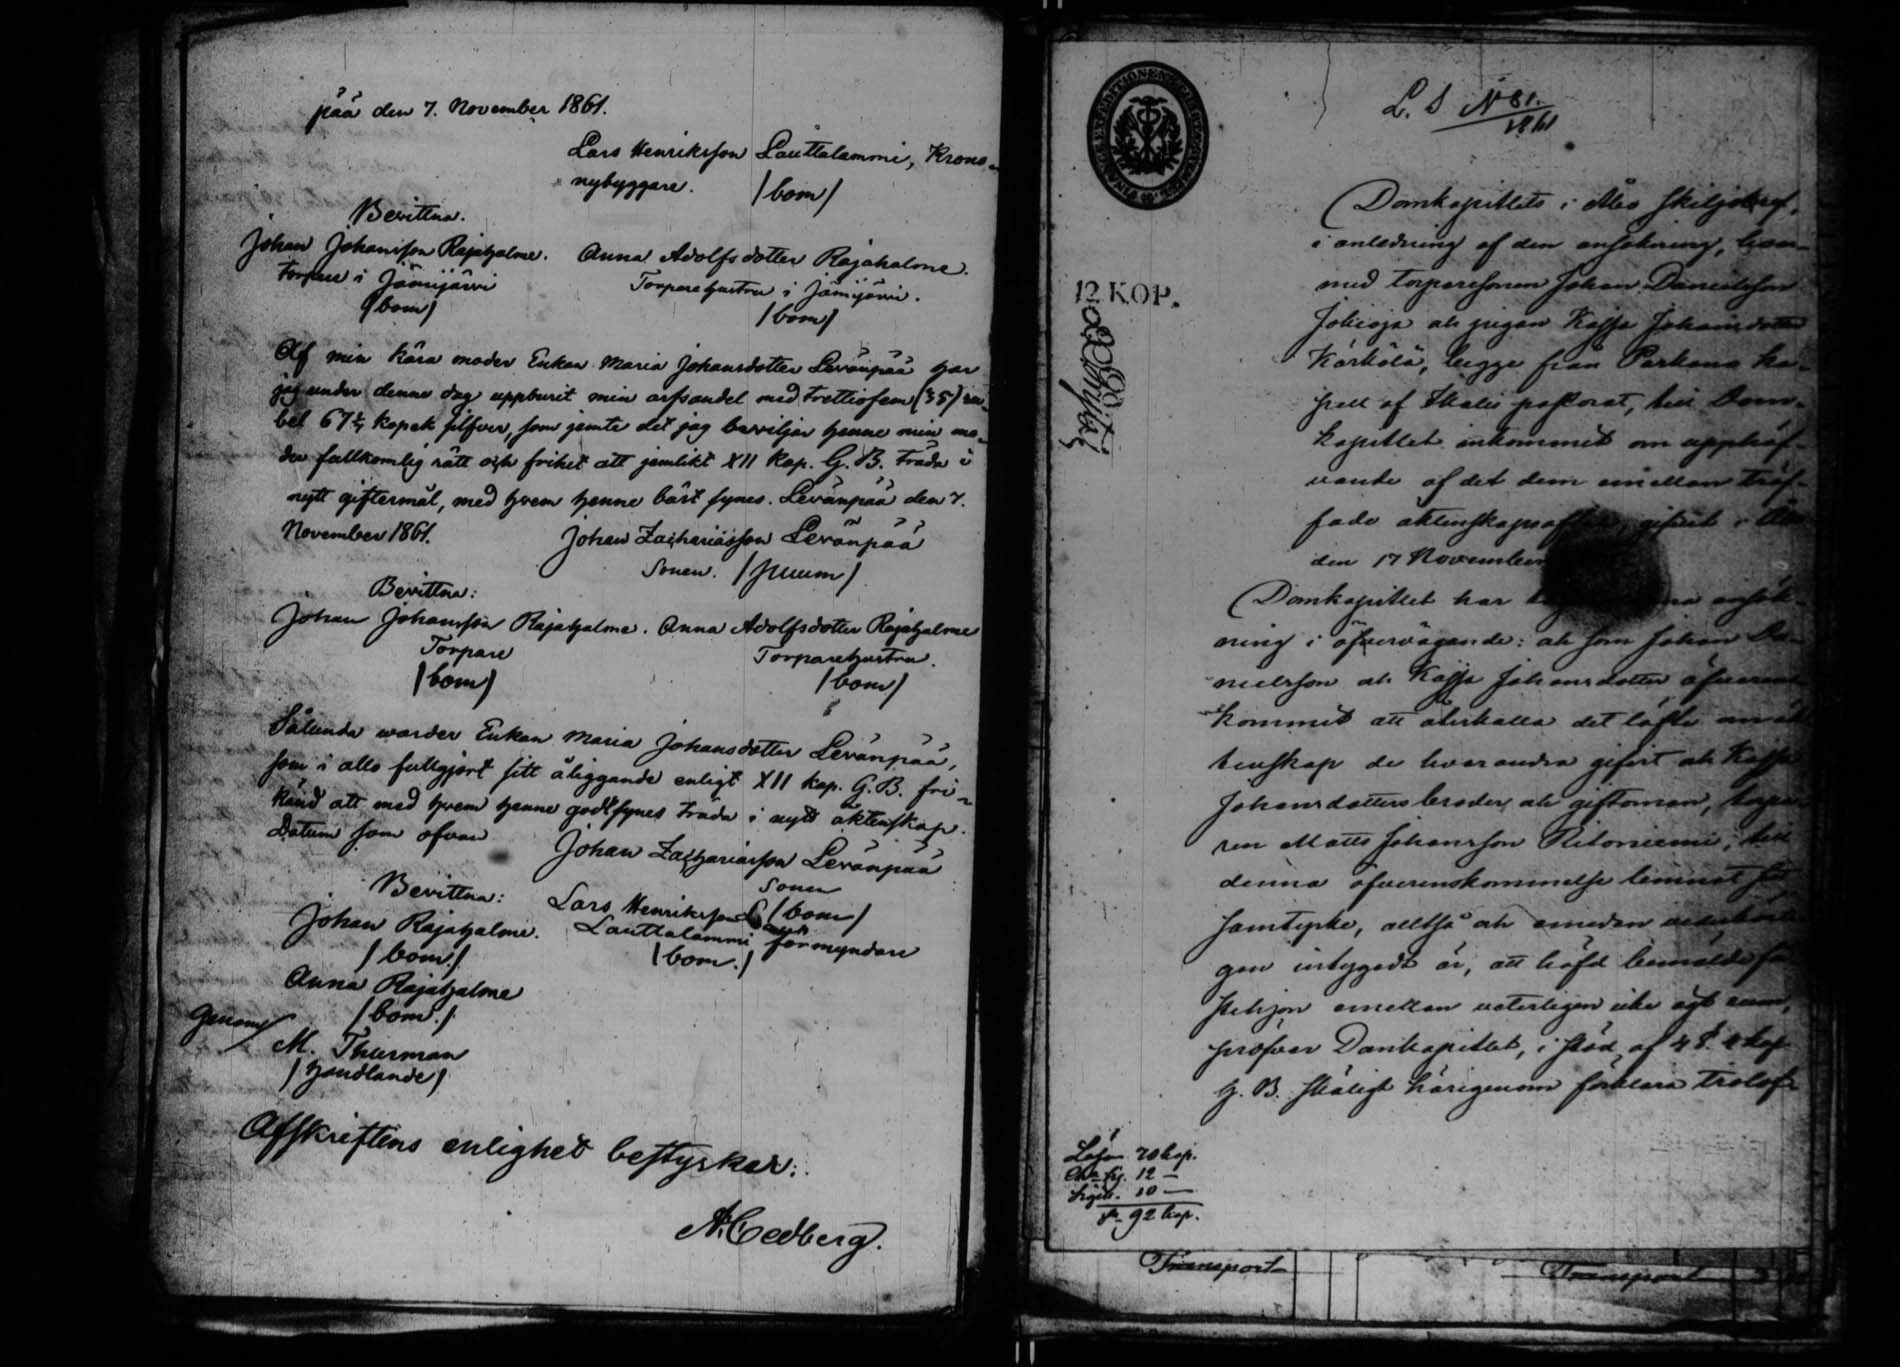 pää den 7. November 1861.
Lars Henriksson Lauttalammi, Krono-
nybyggare. /bom/
Bevittna.
Johan Johansson Rajahalme. Anna Adolfsdotter Rajahalme.
Torpare i Jämijärvi Torparehustru i Jämijärvi.
/bom/ /bom/
Af min kära moder Enkan Maria Johansdotter Levänpää har
jag under denne dag uppburit min arfsandel med Trettiofem (35) ru-
bel 67 1/7 kopek silfver, som jemte det jag beviljar henne min mo-
der fullkomlig rätt och frihet att jemlikt XII Kap. G. B. träda i
nytt giftermål, med hvem henne bäst synes. Levänpää den 7.
November 1861. Johan Zachariasson Levänpää
Sonen. /puum/
Bevittna:
Johan Johansson Rajahalme. Anna Adolfsdotter Rajahalme
Torpare Torparehustru.
/bom/ /bom/
Sålunda warder Enkan Maria Johansdotter Levänpää,
som i allo fullgjort sitt åliggande enligt XII kap. G. B. fri-
känd att med hvem henne godt synes träda i nytt äktenskap.
Datum som ofvan Johan Zachariasson Levänpää
Sonen
Bevittna: Lars Henriksson /bom/
Johan Rajahalme. Lauttalammi förmyndare
/bom./ /bom./
Anna Rajahalme
/bom./
Genom/
M. Thurman
/handlande/
Afskriftens enlighet bestyrker:
A. Cedberg.
L. S. N 81.
1861
12 KOP.
Domkapitlets i Åbo Skiljobref,
i anledning af den ansökning, hvar-
med torparesonen Johan Danielsson
Jokioja och pigan Kajsa Johansdotter
Kärkölä, begge från Parkano ka-
pell af Ikalis pastorat, till Dom-
kapitlet inkommit om upphäf-
vande af det dem emellan träf-
fade äktenskapsaftal, gifvit i Åbo
den 17 November
Domkapitlet har ansök-
ning i öfvervägande: och som Johan Da-
nielsson och Kajsa Johansdotter öfverens-
kommit att återkalla det löfte om äk-
tenskap de hvarandra gifvit och Kajsa
Johansdotters broder och giftoman, torpa-
ren Matts Johansson Ritoniemi, till
denna öfverenskommelse lemnat sitt
samtycke, alltså och emedan
intygadt är, att häfd bemälde
emellan veterligen icke egt rum,
pröfvar Domkapitlet, i stöd af 4 §. 4 Kap.
G. B. skäligt härigenom förklara trolof-
Lösen 70 kop.
Cha. Sg. 12 —
Sigill. 10 —
S:a 92 kop.
Transport
Transport